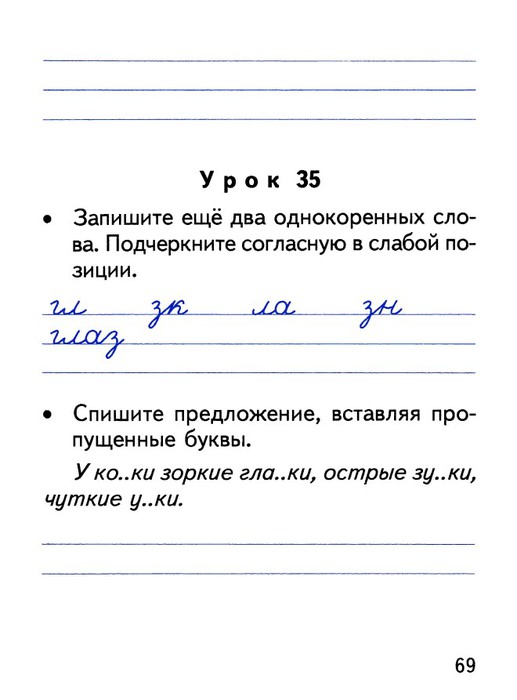 Урок 35
• Запишите ещё два однокоренных сло-
ва. Подчеркните согласную в слабой по-
зиции.
гл зк ла зн
глаз
• Спишите предложение, вставляя про-
пущенные буквы.
У ко..ки зоркие гла..ки, острые зу..ки,
чуткие у..ки.
69